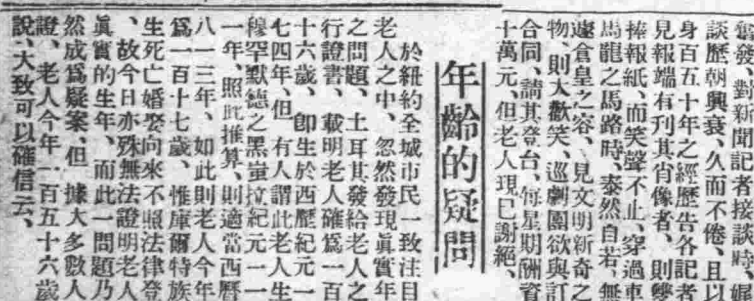 奮發、對新聞記者接談時、娓
談歷朝興衰、久而不倦、且以
身百五十年之經歷告各記者
見報端有刊其肖像者、則雙
捧報紙、而笑聲不止、穿過車
馬龍之馬路時、泰然自若、無
遽倉皇之容、見文明新奇之
物、則大歡笑、巡劇團欲與訂
合同、請其登台、每星期酬資
十萬元、但老人現已謝絕、
年齡的疑問
於紐約全城市民一致注目
老人之中、忽然發現眞實年
之問題、土耳其發給老人之
行證書、載明老人確爲一百
十六歲、卽生於西歷紀元一
七四年、但有人謂此老人生
穆罕默德之黑蚩拉紀元一一
一年、照此推算、則適當西曆
八一三年、如此則老人今年
爲一百十七歲、惟庫爾特族
生死亡婚娶向來不照法律登
、故今日亦殊無法證明老人
眞實的生年、而此一問題乃
然成爲疑案、但據大多數人
證、老人今年一百五十六歲
說、大致可以確信云、